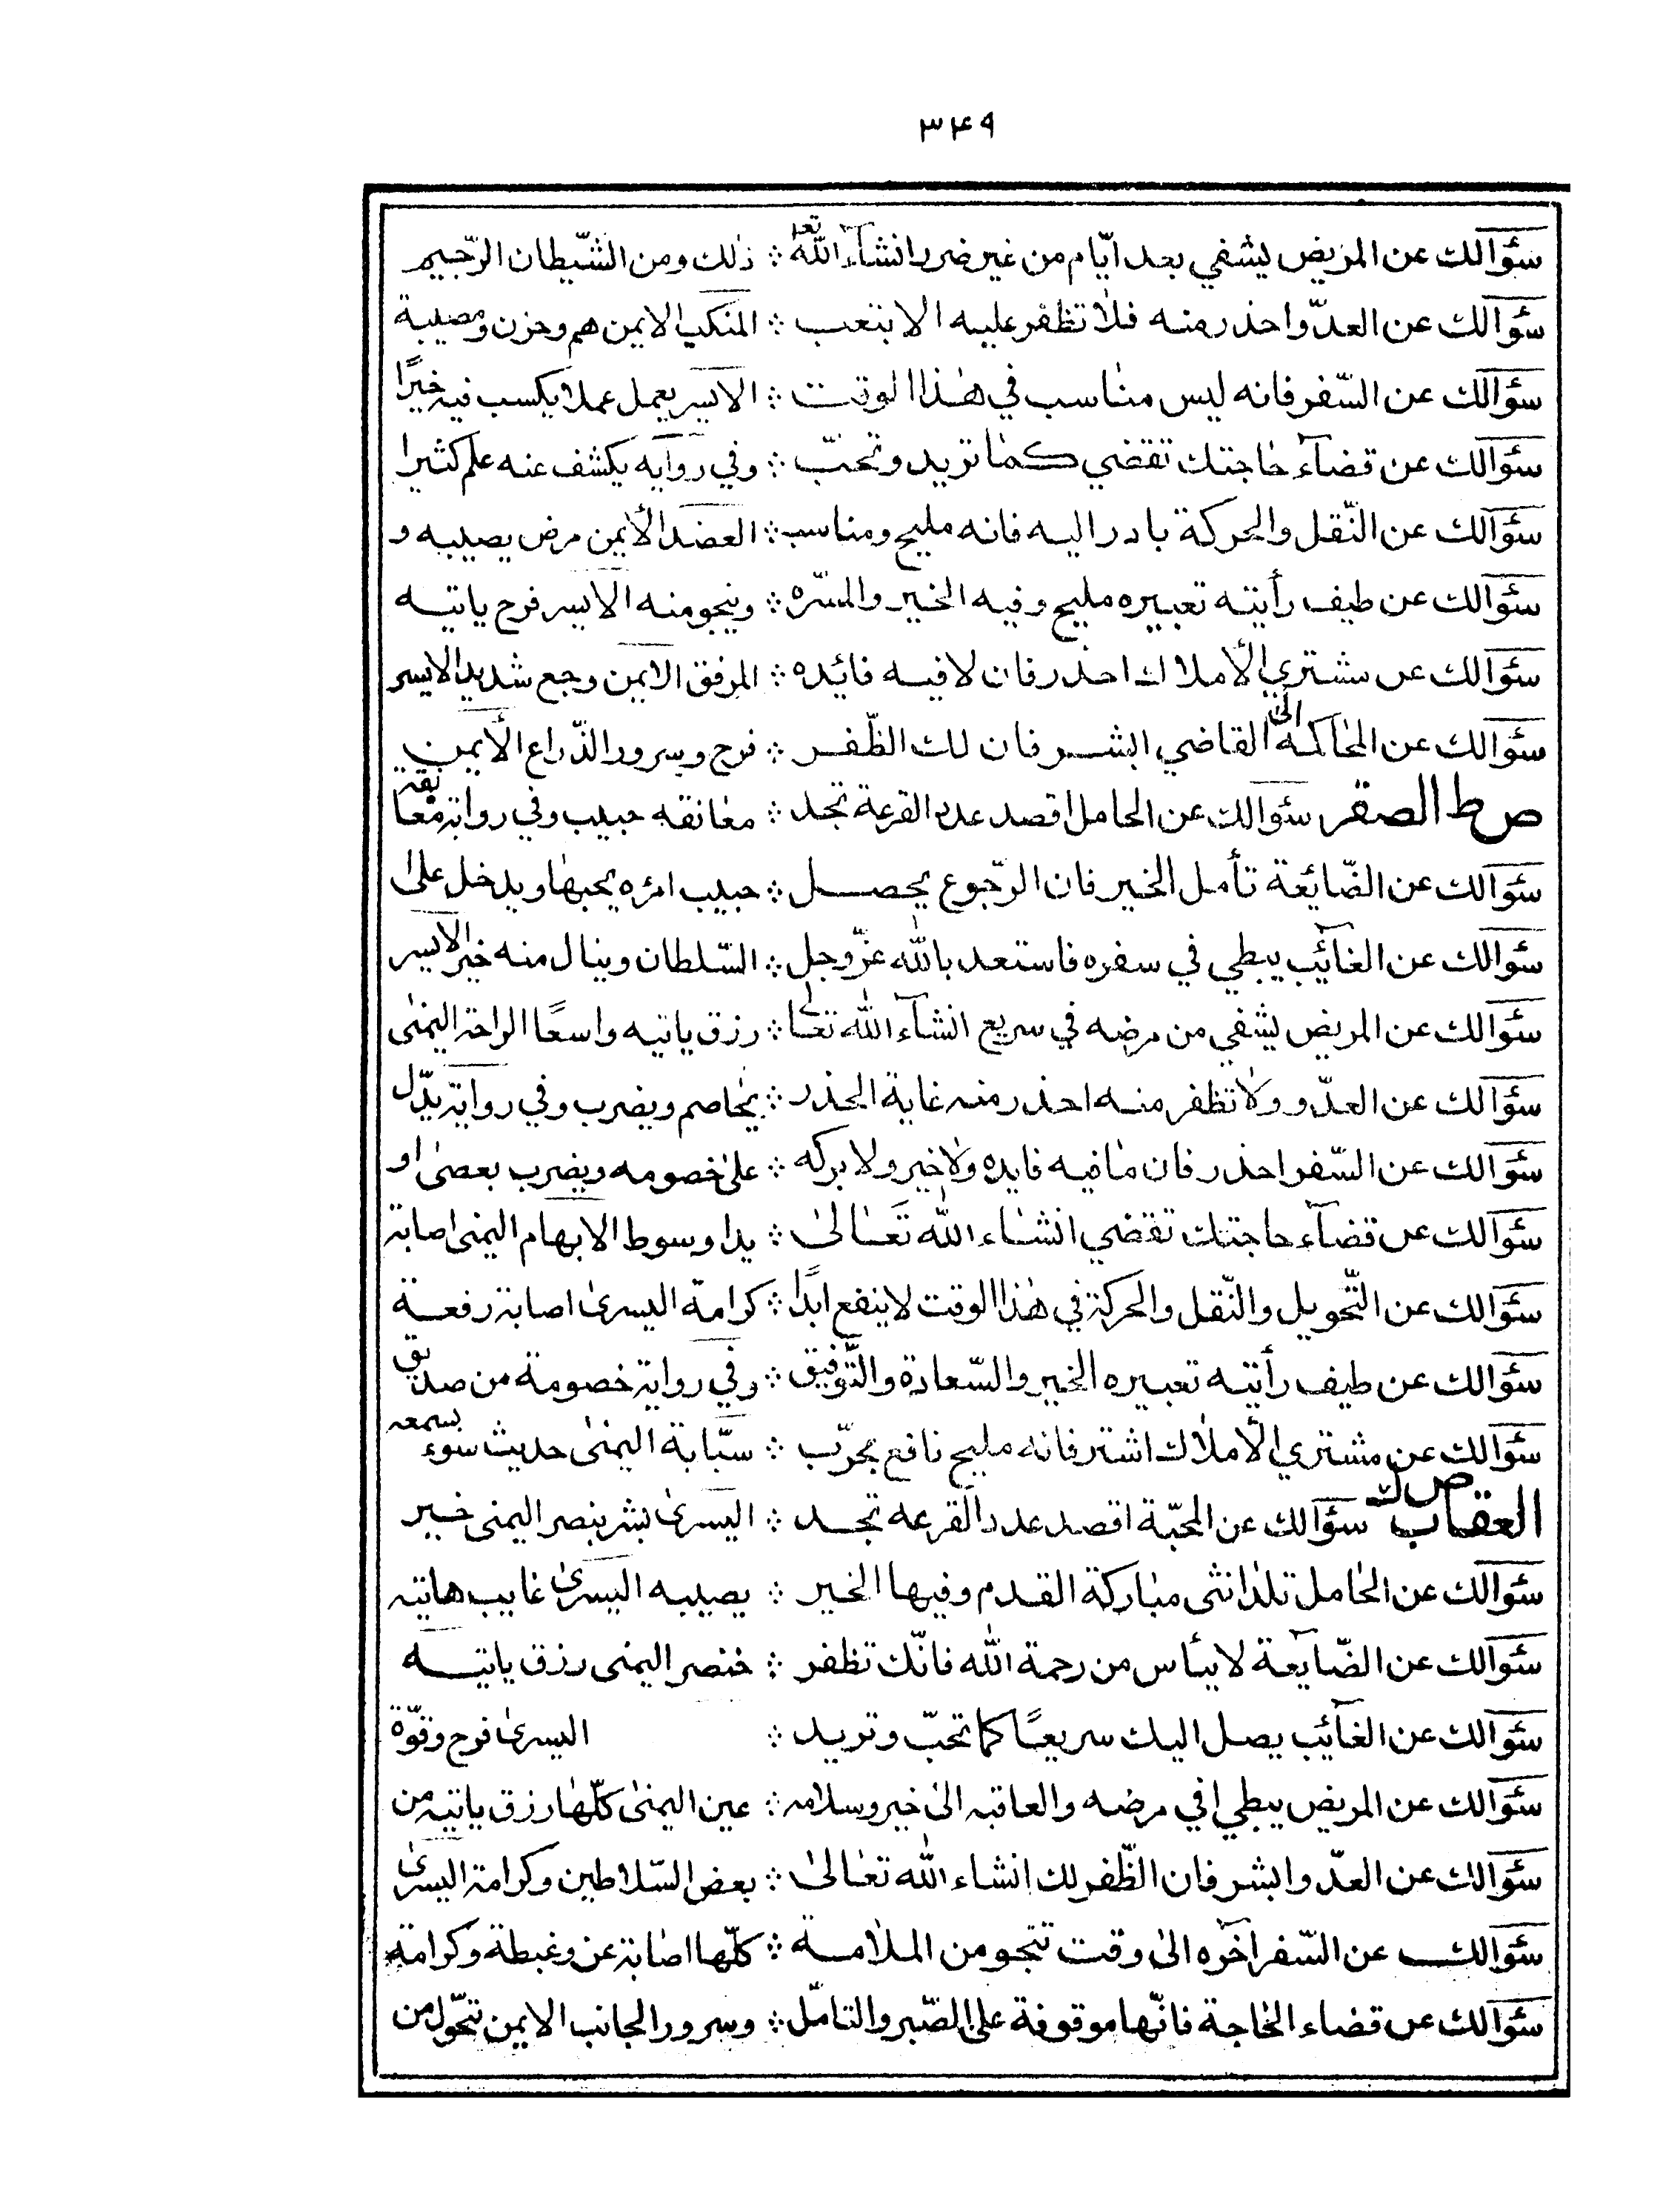 ٣٤٩
سؤالك عن المريض يشفي بعد ايّام من غير ضرر انشآء اللّه تعا ∴ ذلك ومن الشّيطان الرّجيم
سؤالك عن العدّو احذر منه فلا تظفر عليه الا بتعب ∴ المنكب الايمن هم وحزن ومصيبة
سؤالك عن السّفر فانه ليس مناسب في هذا الوقت ∴ الايسر يعمل عملا يكسب فيه خيرًا
سؤالك عن قضآء حاجتك تقضي كما تريد وتحبّ ∴ وفي روايه يكشف عنه علم كثيرا
سؤالك عن النّقل والحركة بادر اليه فانه مليح ومناسب ∴ العضد الأيمن مرض يصيبه و
سؤالك عن طيف رأيته تعبيره مليح وفيه الخير والمسّره ∴ وينجو منه الايسر فرح ياتيه
سؤالك عن مشتري الأملاك احذر فان لا فيه فائده ∴ المرفق الايمن وجع شديد الايسر
سؤالك عن المحاكمه الى القاضي ابشر فان لك الظّفر ∴ فرج وسرور الذّراع الأيمن
صط الصقر سؤالك عن الحامل اقصد عدد القرعة تجد ∴ معانقه حبيب وفي رواية معانقة
سؤالك عن الضّائعة تأمل الخير فان الرّجوع يحصل ∴ حبيب امره يحبها ويدخل على
سؤالك عن الغائب يبطي في سفره فاستعد باللّه عزّ وجل ∴ السّلطان وينال منه خير الايسر
سؤالك عن المريض يشفي من مرضه في سريع انشآء اللّه تعالى ∴ رزق ياتيه واسعًا الراحة اليمنى
سؤالك عن العدّو ولا تظفر منه احذر منه غاية الحذر ∴ يخاصم ويضرب وفي رواية يدّل
سؤالك عن السّفر احذر فان ما فيه فايده ولا خير ولا بركه ∴ على خصومه ويضرب بعصى او
سؤالك عن قضآء حاجتك تقضي انشاء اللّه تَعَالى ∴ يدا وسوط الابهام اليمنى اصابة
سؤالك عن التّحويل والنّقل والحركة في هذا الوقت لا ينفع ابدًا ∴ كرامة اليسرى اصابة رفعة
سؤالك عن طيف رأيته تعبيره الخير والسّعادة والتّوفيق ∴ وفي رواية خصومة من صديق
سؤالك عن مشتري الأملاك اشتر فانه مليح نافع مجرّب ∴ سبّابة اليمنى حديث سوء يسمعه
العقاب ص سؤالك عن المحبّة اقصد عدد القرعه تجد ∴ اليسرى بشر بنصر اليمنى خير
سؤالك عن الحامل تلد انثى مباركة القدم وفيها الخير ∴ يصيبه اليسرى غايب هاتيه
سؤالك عن الضّايعة لا يئاس من رحمة اللّه فانّك تظفر ∴ خنصر اليمنى رزق ياتيه
سؤالك عن الغائب يصل اليك سريعًا كما تحبّ وتريد ∴ اليسرى فرح وقوّة
سؤالك عن المريض يبطي في مرضه والعاقبه الى خير وسلامه ∴ عين اليمنى كلّها رزق ياتيه من
سؤالك عن العدّو ابشر فان الظّفر لك انشاء اللّه تعالى ∴ بعض السّلاطين وكرامة اليسرى
سؤالك عن السّفر اخّره الى وقت تنجو من الملامة ∴ كلّها اصابة عز وغبطة وكرامة
سؤالك عن قضاء الحاجة فانّها موقوفة على الصّبر والتامّل ∴ وسرور الجانب الايمن تحوّل من